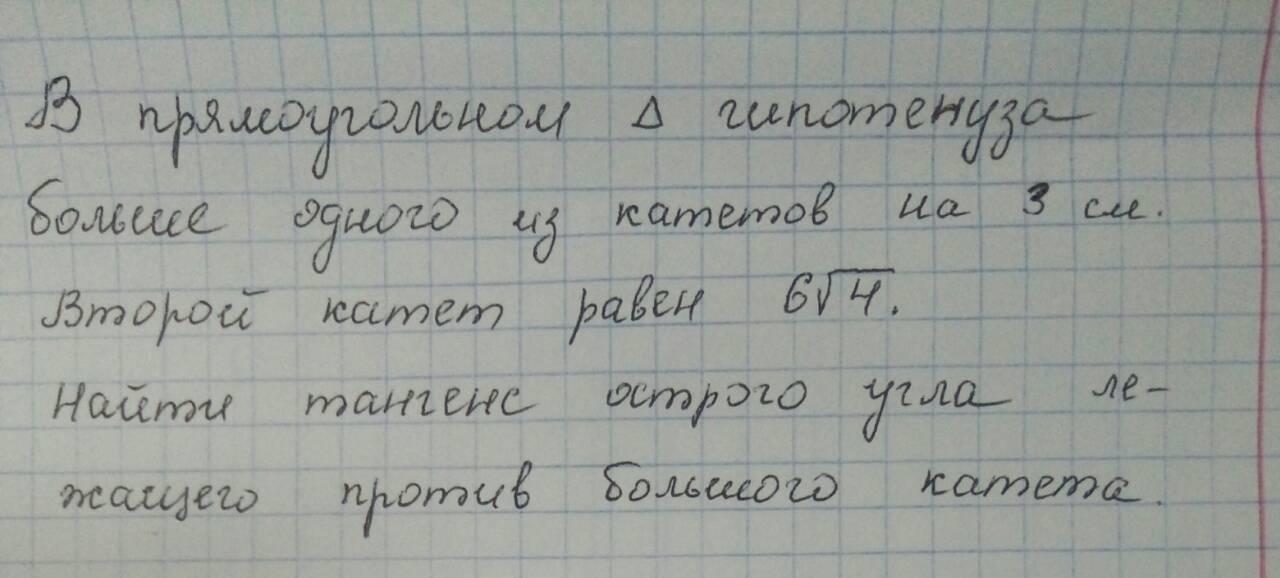 В прямоугольном Δ гипотенуза
больше одного из катетов на 3 см.
Второй катет равен 6√4.
Найти тангенс острого угла ле-
жащего против большого катета.